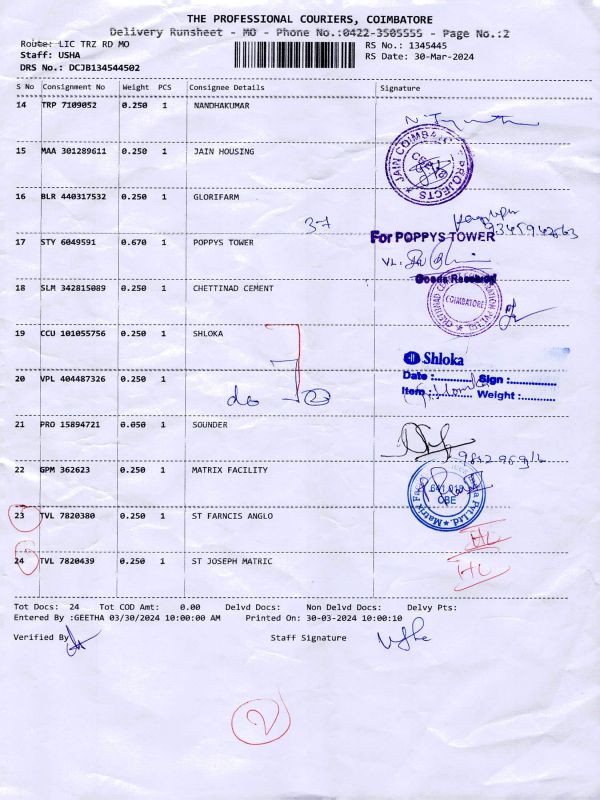 THE PROFESSIONAL COURIERS, COIMBATORE
Delivery Runsheet - MO - Phone No.:0422-3505555 - Page No.:2
Route: LIC TRZ RD MO RS No.: 1345445
Staff: USHA RS Date: 30-Mar-2024
DRS No.: DCJB134544502
S No Consignment No Weight PCS Consignee Details Signature
14 TRP 7109052 0.250 1 NANDHAKUMAR
15 MAA 301289611 0.250 1 JAIN HOUSING
JAIN COIMBATORE PROJECTS
16 BLR 440317532 0.250 1 GLORIFARM
37
17 STY 6049591 0.670 1 POPPYS TOWER
For POPPYS TOWER
Goods Received
18 SLM 342815089 0.250 1 CHETTINAD CEMENT
COIMBATORE
19 CCU 101055756 0.250 1 SHLOKA
Shloka
Date :............ Sign :..............
Item :............ Weight :............
20 VPL 404487326 0.250 1
do 2
21 PRO 15894721 0.050 1 SOUNDER
22 GPM 362623 0.250 1 MATRIX FACILITY
CBE
23 TVL 7820380 0.250 1 ST FARNCIS ANGLO
HL
24 TVL 7820439 0.250 1 ST JOSEPH MATRIC
HL
Tot Docs: 24 Tot COD Amt: 0.00 Delvd Docs: Non Delvd Docs: Delvy Pts:
Entered By :GEETHA 03/30/2024 10:00:00 AM Printed On: 30-03-2024 10:00:10
Verified By Staff Signature
Usha
2